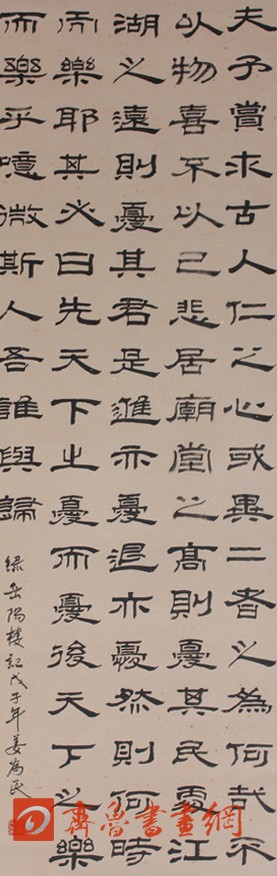 夫予嘗求古人仁之心或異二者之為何哉不
以物喜不以己悲居廟堂之高則憂其民處江
湖之遠則憂其君是進亦憂退亦憂然則何時
而樂耶其必曰先天下之憂而憂後天下之樂
而樂乎噫微斯人吾誰與歸
録岳陽樓記戊子年姜為民
齊魯書畫網